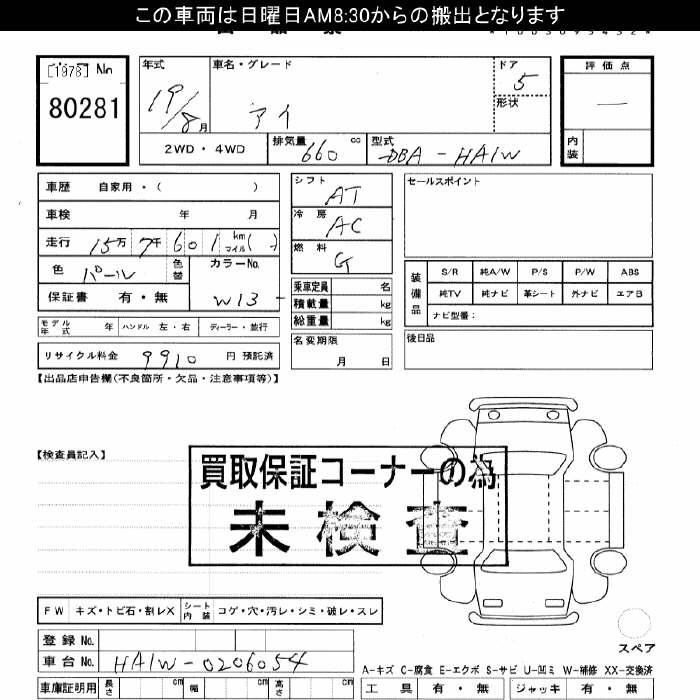 この車両は日曜日AM8:30からの搬出となります
[1978] No
80281
年式
19/8月
車名・グレード
アイ
ドア
5
形状
評価点
―
内装
2WD・4WD
排気量 660 cc
型式 DBA-HA1W
車歴 自家用・( )
車検 年 月
走行 15万 7千 601 km マイル( )
色 パール
色替
カラーNo.
W13-
保証書 有・無
シフト AT
冷房 AC
燃料 G
乗車定員 名
積載量 kg
総重量 kg
名変期限 月 日
セールスポイント
装備品
S/R 純A/W P/S P/W ABS
純TV 純ナビ 革シート 外ナビ エアB
ナビ型番:
後日品
モデル年式 年 ハンドル 左・右 ディーラー・並行
リサイクル料金 9910 円 預託済
【出品店申告欄(不良箇所・欠品・注意事項等)】
【検査員記入】
買取保証コーナーの為
未検査
FW キズ・トビ石・割レX シート内装 コゲ・穴・汚レ・シミ・破レ・スレ
登録 No.
車台 No. HA1W-0206054
スペア
A-キズ C-腐食 E-エクボ S-サビ U-凹ミ W-補修 XX-交換済
車庫証明用 長さ cm 幅 cm 高さ cm
工具 有・無 ジャッキ 有・無